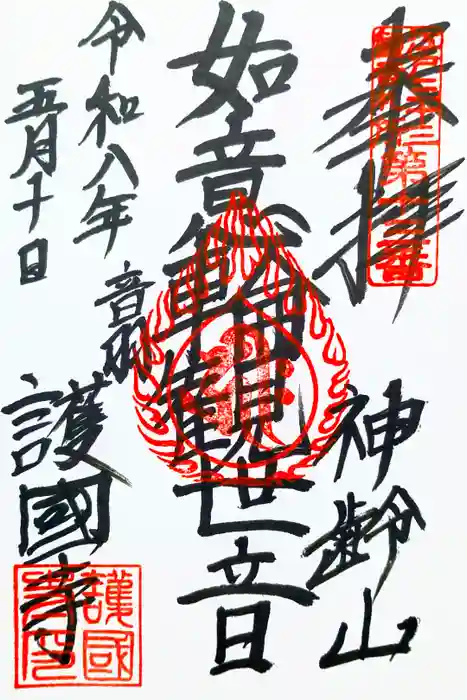 奉拝
第十三番
神齢山
如意輪觀世音
令和八年
五月十日
音羽
護國寺
護國
寺印